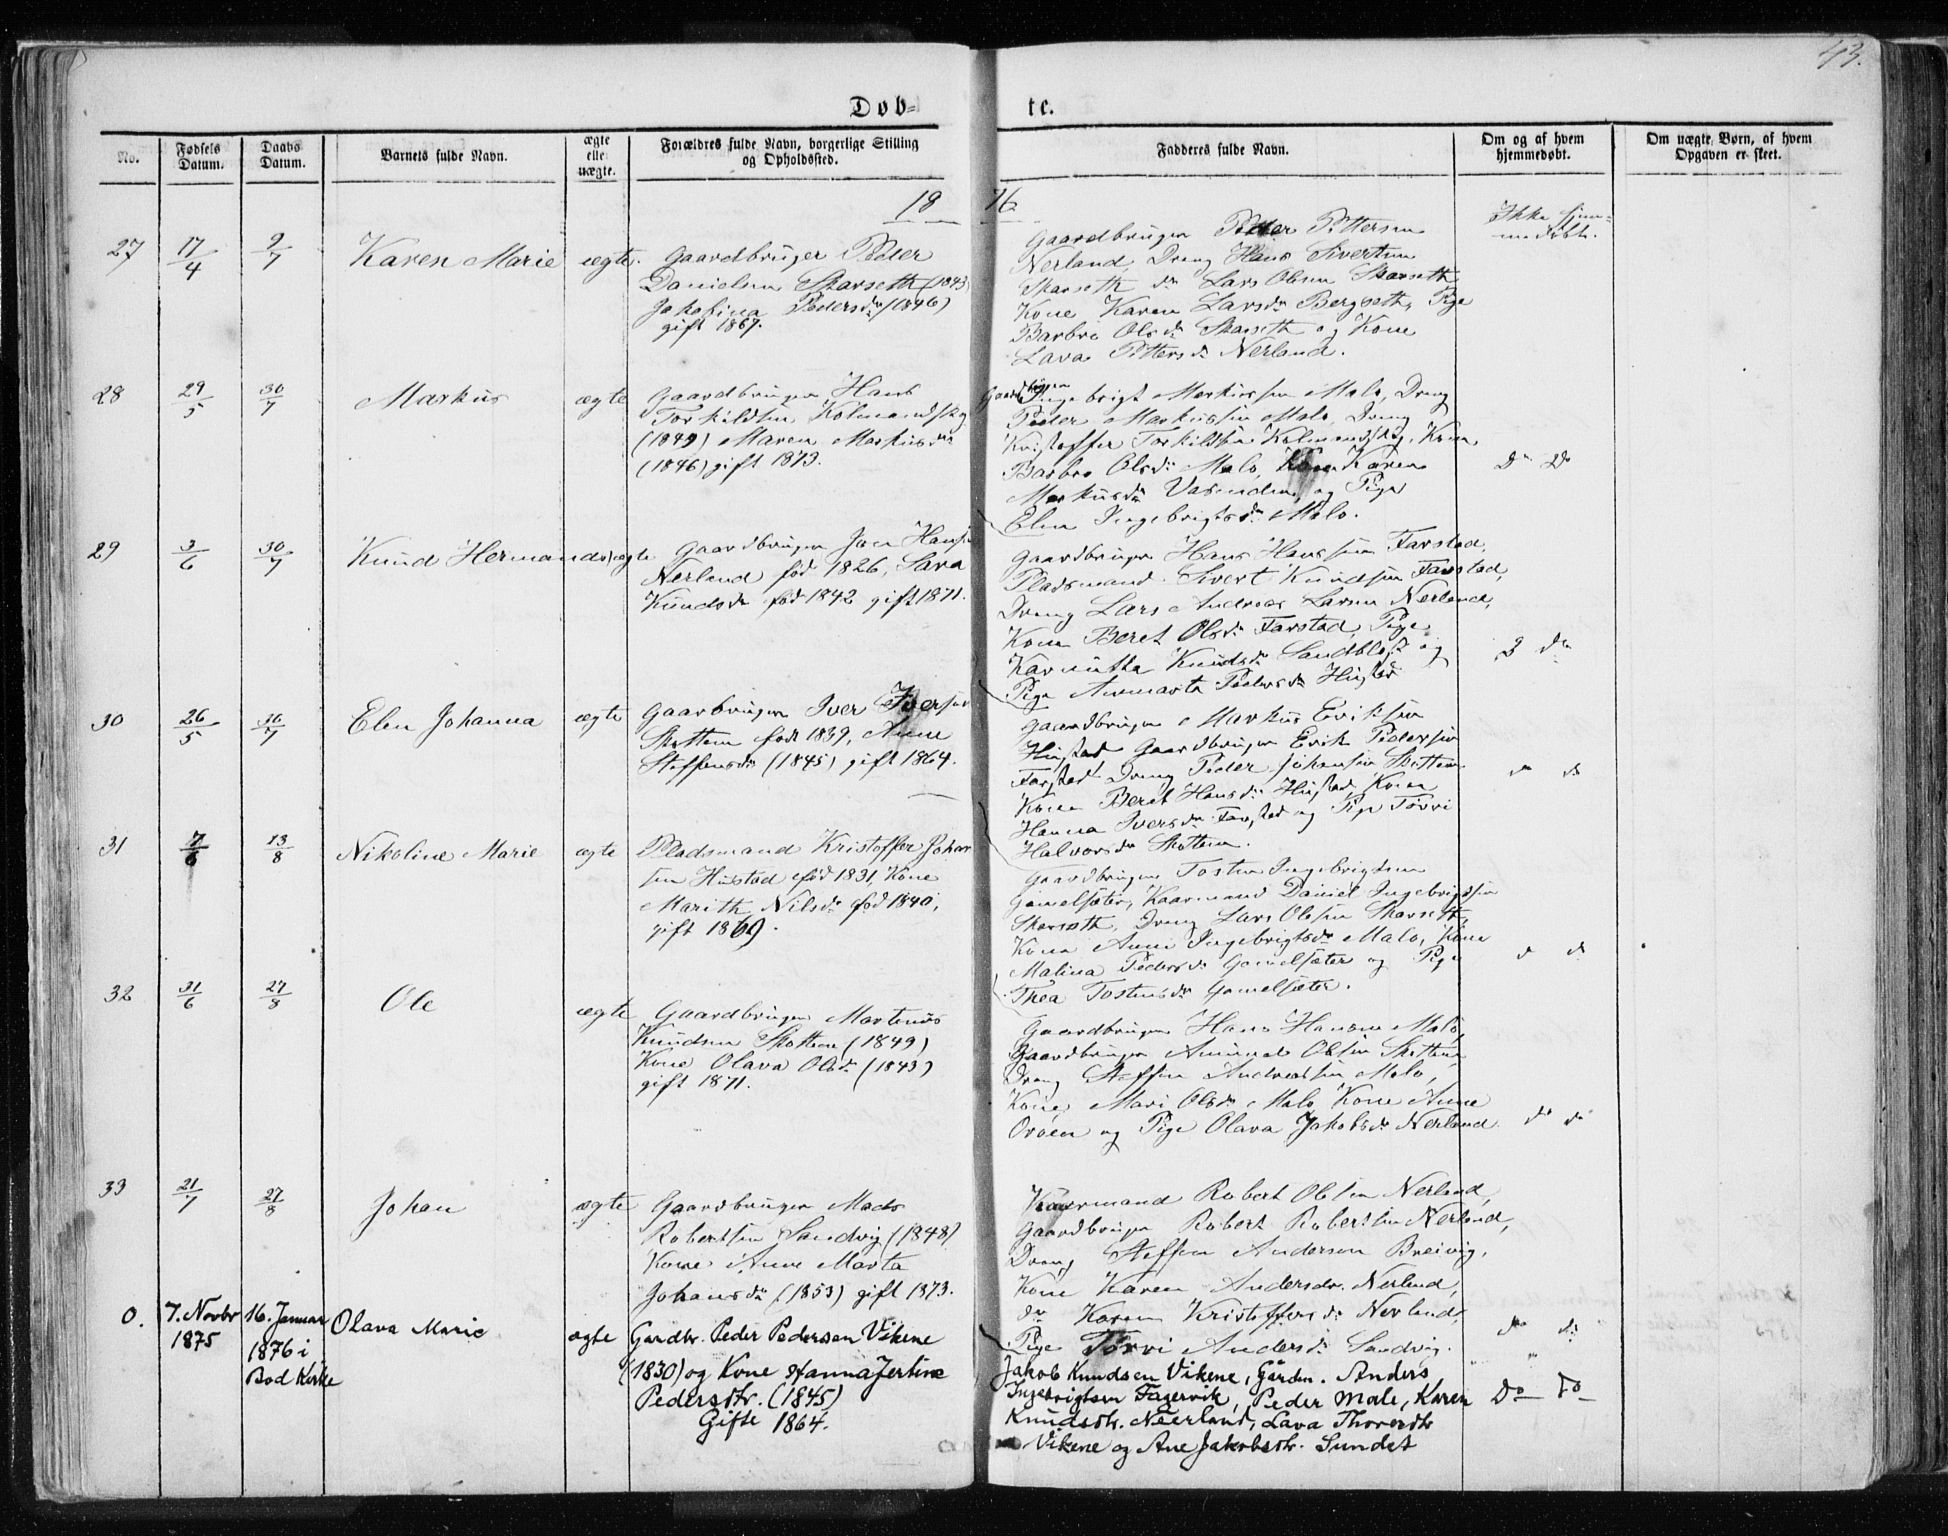 43.
Døb= te.
No.
Fødsels Datum.
Daabs Datum.
Barnets fulde Navn.
ægte eller uægte.
Forældres fulde Navn, borgerlige Stilling og Opholdssted.
Fadderes fulde Navn.
Om og af hvem hjemmedøbt.
Om uægte Børn, af hvem Opgaven er skeet.
18 76
27 17/4 9/7 Karen Marie ægte.
Gaardbruger Peder
Danielsen Skarseth (1843)
Jakobina Pedersdr (1846)
gift 1867.
Gaardbruger Peder Pettersen
Nerland, Dreng Hans Sivertsen
Skarseth do Lars Olsen Skarseth
Kone Karen Larsdr Bergseth, Pige
Barbro Olsdr Skarseth og Kone
Lava Pettersdr Nerland.
Ikke hjem-
medøbt.
28 29/5 30/7 Markus ægte
Gaardbruger Hans
Torkildsen Kolmandskog
(1849) Maren Markusdr
(1846) gift 1873.
Gaardbruger Ingebrigt Markussen Malo, Dreng
Peder Markussen Malo, Dreng
Kristoffer Torkildsen Kolmandskog, Kone
Barbro Olsdr Malo, Kone Karen
Markusdr Vasenden, og Pige
Elen Ingebrigtsdr Malo.
Do Do
29 3/6 30/7 Knud Hermandus ægte
Gaardbruger Jon Hansen
Nerland født 1826, Sara
Knudsdr født 1842 gift 1871.
Gaardbruger Hans Hanssen Farstad,
Pladsmand Sivert Knudsen Farstad,
Dreng Lars Andreas Larsen Nerland,
Kone Beret Olsdr Farstad, Pige
Knudsdr Sandblost og
Pige Annmarta Pedersdr Hustad
do
30 26/5 30/7 Elen Johanna ægte
Gaarbruger Iver Iversen
Skottem født 1839, Anne
Steffensdr (1845) gift 1864.
Gaardbruger Markus Eriksen
Hustad Gaardbruger Erik Pedersen
Farstad Dreng Peder Johansen Skottem
Kone Beret Hansdr Hustad, Kone
Hanna Iversdr Farstad og Pige Torri
Halvorsdr Skottem.
do do
31 7/6 13/8 Nikoline Marie ægte
Pladsmand Kristoffer Johan
sen Hustad født 1831, Kone
Marith Nilsdr født 1840,
gift 1869.
Gaardbruger Tosten Ingebrigtsen
Gamelsæter, Kaarmand Daniel Ingebrigtsen
Skarseth, Dreng Lars Olsen Skarseth,
Kone Anne Ingebrigtsdr Malo, Kone
Malina Pedersdr Gamelsæter og Pige
Thea Tostensdr Gamelsæter.
do do
32 31/6 27/8 Ole ægte
Gaardbruger Martenus
Knudsen Skottem (1849)
Kone Olava Olsdr (1843)
gift 1871.
Gaardbruger Hans Hansen Malo,
Gaardbruger Amund Olsen Skottem
Dreng Steffen Andreassen Malo,
Kone Mari Olsdr Malo Kone Anne
Oraen og Pige Olava Jakobsdr Nerland
do do
33 21/7 27/8 Johan ægte
Gaardbruger Mads
Robertsen Sandvig (1848)
Kone Anne Marta
Johansdr (1853) gift 1873.
Kaarmand Robert Olsen Nerland,
Gaardbruger Robert Robertsen Nerland,
Dreng Steffen Andersen Breivig,
Kone Karen Andersdr Nerland,
do Karen Kristoffersdr Nerland,
Pige Torri Andersdr Sandvig.
do do
0. 7. Novbr 1875
16. Januar 1876 i Bod Kirke
Olava Marie ægte
Gardbr. Peder Pedersen Vikene
(1830) og Kone Hanna Jertine
Pedersdtr. (1845)
Gifte 1864.
Jakob Knudsen Vikene, Gårdm. Anders
Ingebrigtsen Fagervik, Peder Male, Karen
Knudsdtr. Neerland, Lava Thoresdtr
Vikene og Ane Jakobsdtr. Sundet
Do Do